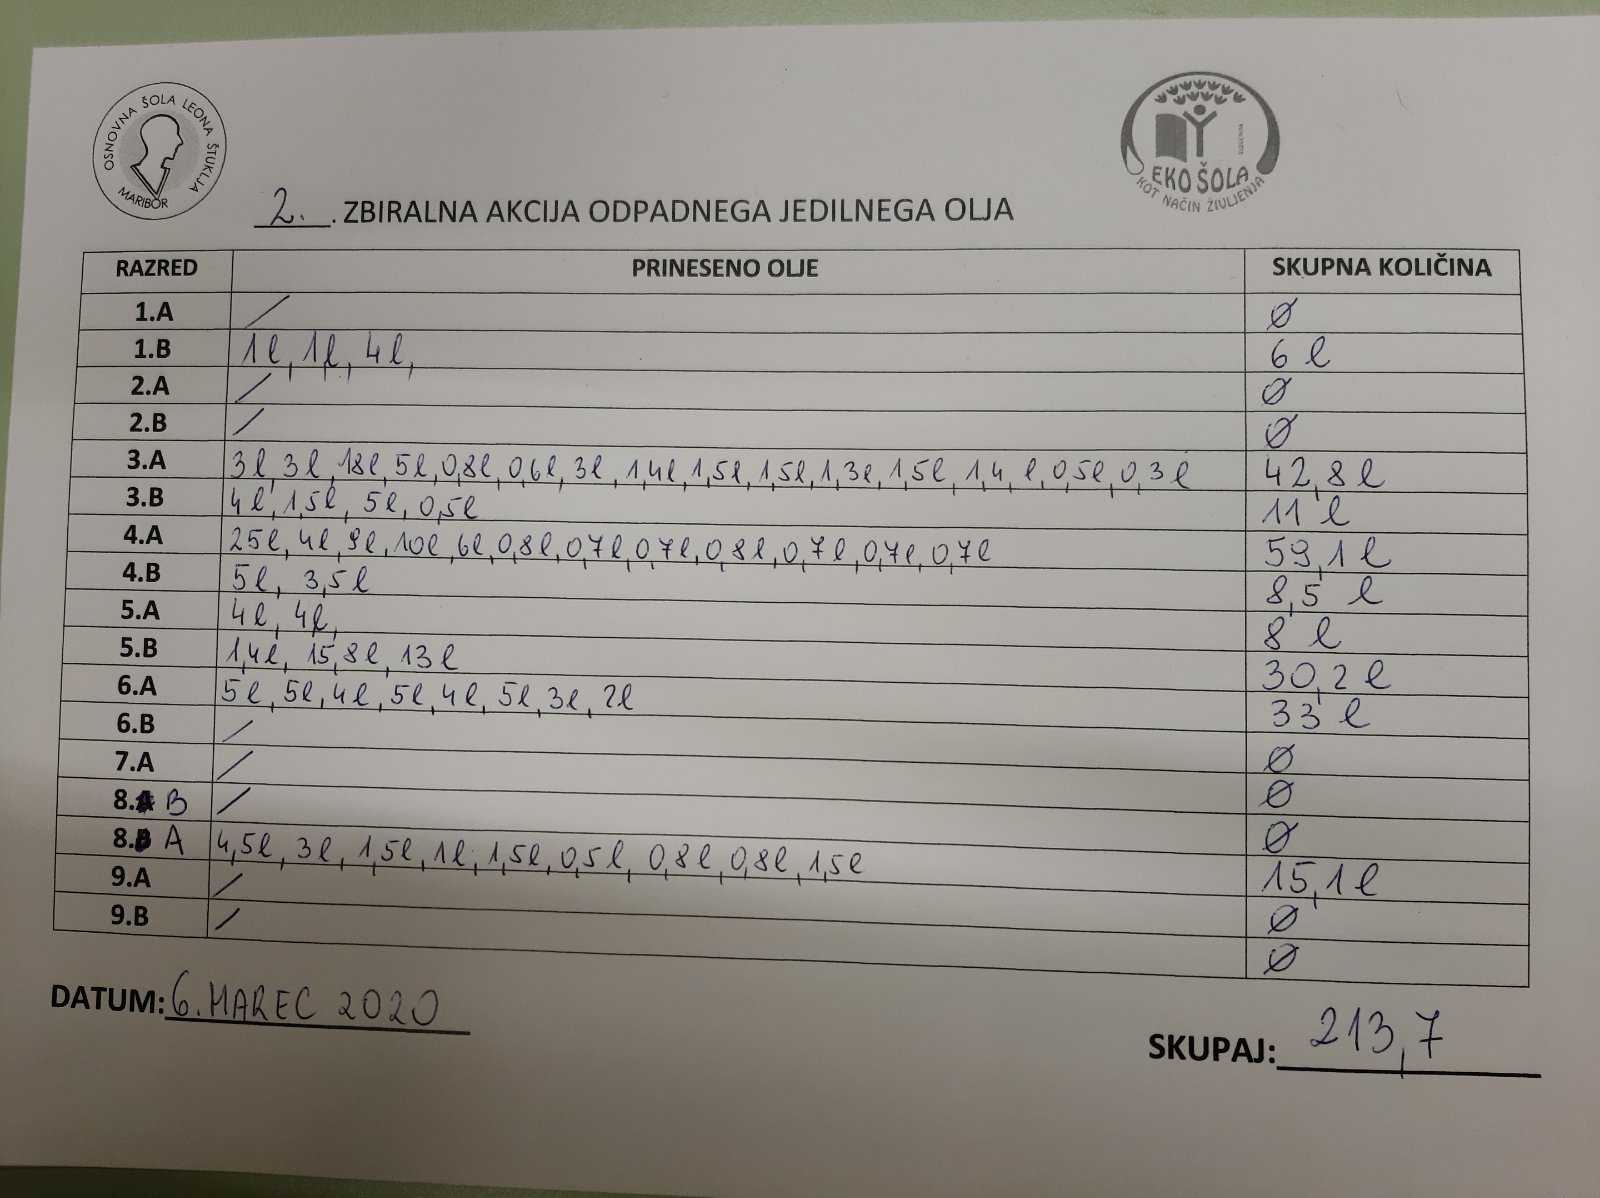 OSNOVNA ŠOLA LEONA ŠTUKLJA
MARIBOR
EKO ŠOLA
KOT NAČIN ŽIVLJENJA
2. . ZBIRALNA AKCIJA ODPADNEGA JEDILNEGA OLJA
RAZRED PRINESENO OLJE SKUPNA KOLIČINA
1.A / Ø
1.B 1l, 1l, 4l, 6 l
2.A / Ø
2.B / Ø
3.A 3l, 3l, 18l, 5l, 0,8l, 0,6l, 3l, 1,4l, 1,5l, 1,5l, 1,3l, 1,5l, 1,4 l, 0,5l, 0,3l 42,8 l
3.B 4l, 1,5l, 5l, 0,5l 11 l
4.A 25l, 4l, 9l, 10l, 6l, 0,8l, 0,7l, 0,7l, 0,8l, 0,7l, 0,7l, 0,7l 59,1 l
4.B 5l, 3,5l 8,5 l
5.A 4l, 4l, 8 l
5.B 1,4l, 15,8l, 13l 30,2 l
6.A 5l, 5l, 4l, 5l, 4l, 5l, 3l, 2l 33 l
6.B / Ø
7.A / Ø
8. B / Ø
8. A 4,5l, 3l, 1,5l, 1l, 1,5l, 0,5l, 0,8l, 0,8l, 1,5l 15,1 l
9.A / Ø
9.B / Ø
DATUM: 6. MAREC 2020
SKUPAJ: 213,7